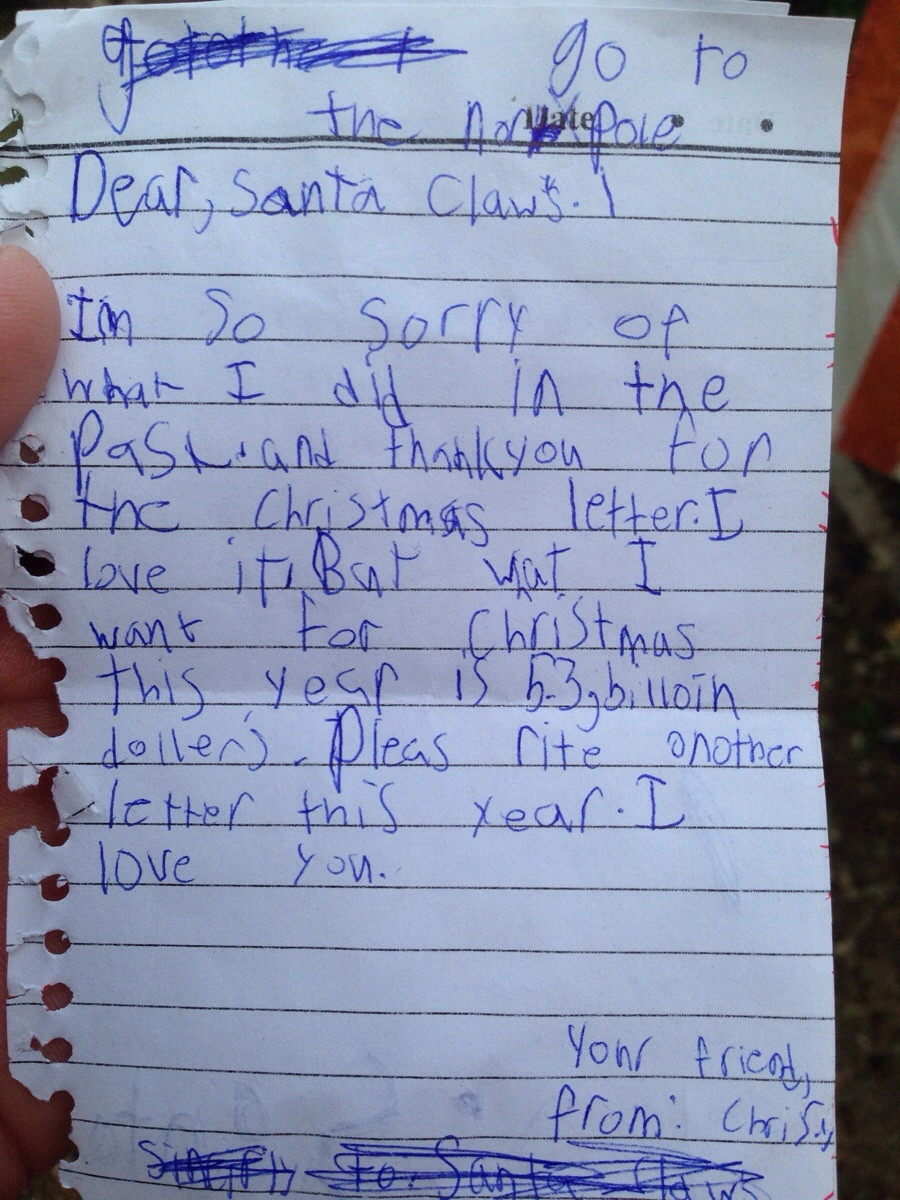 go to
the nor pole
Date
Dear, Santa Claws.
Im so sorry of
what I did in the
past.and thankyou for
the Christmas letter.I
love it. But what I
want for Christmas
this year is 5.3,billoin
dollers. Pleas rite onother
letter this year. I
love you.
Your friend,
from: Chris.
to Santa Claws